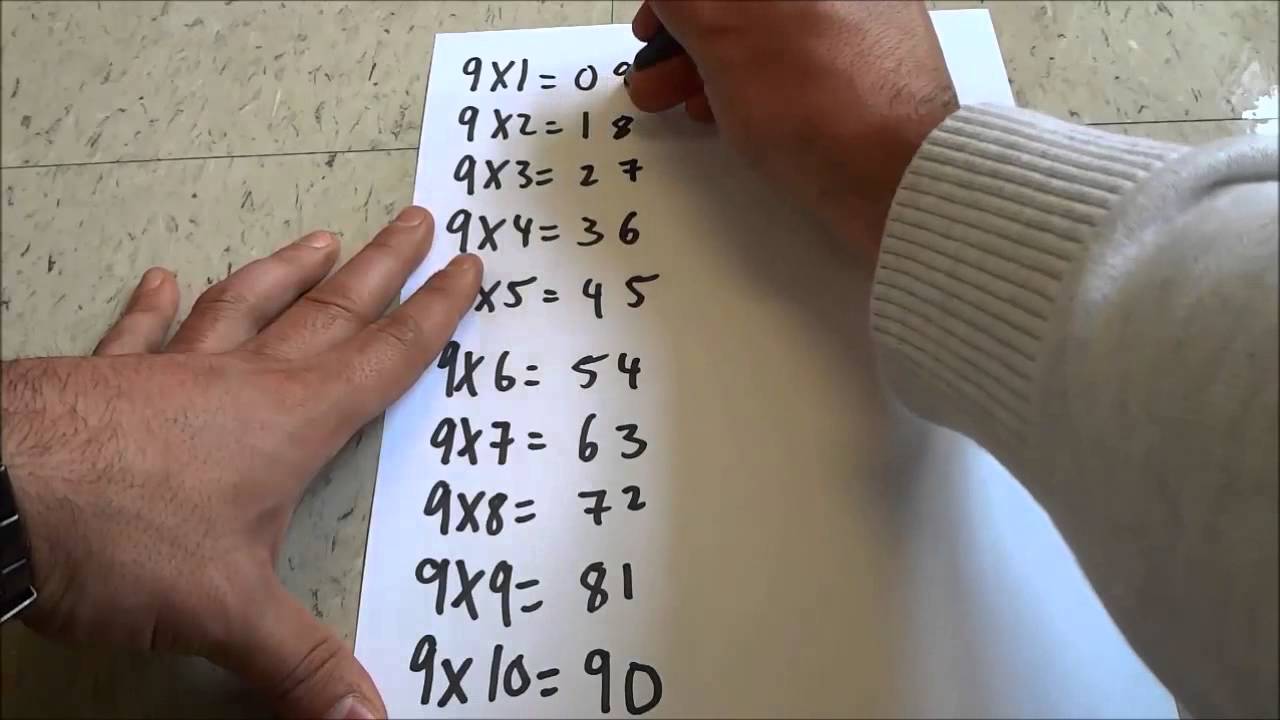 9X1=09
9X2=18
9X3=27
9X4=36
X5=45
9X6=54
9X7=63
9X8=72
9X9=81
9X10=90